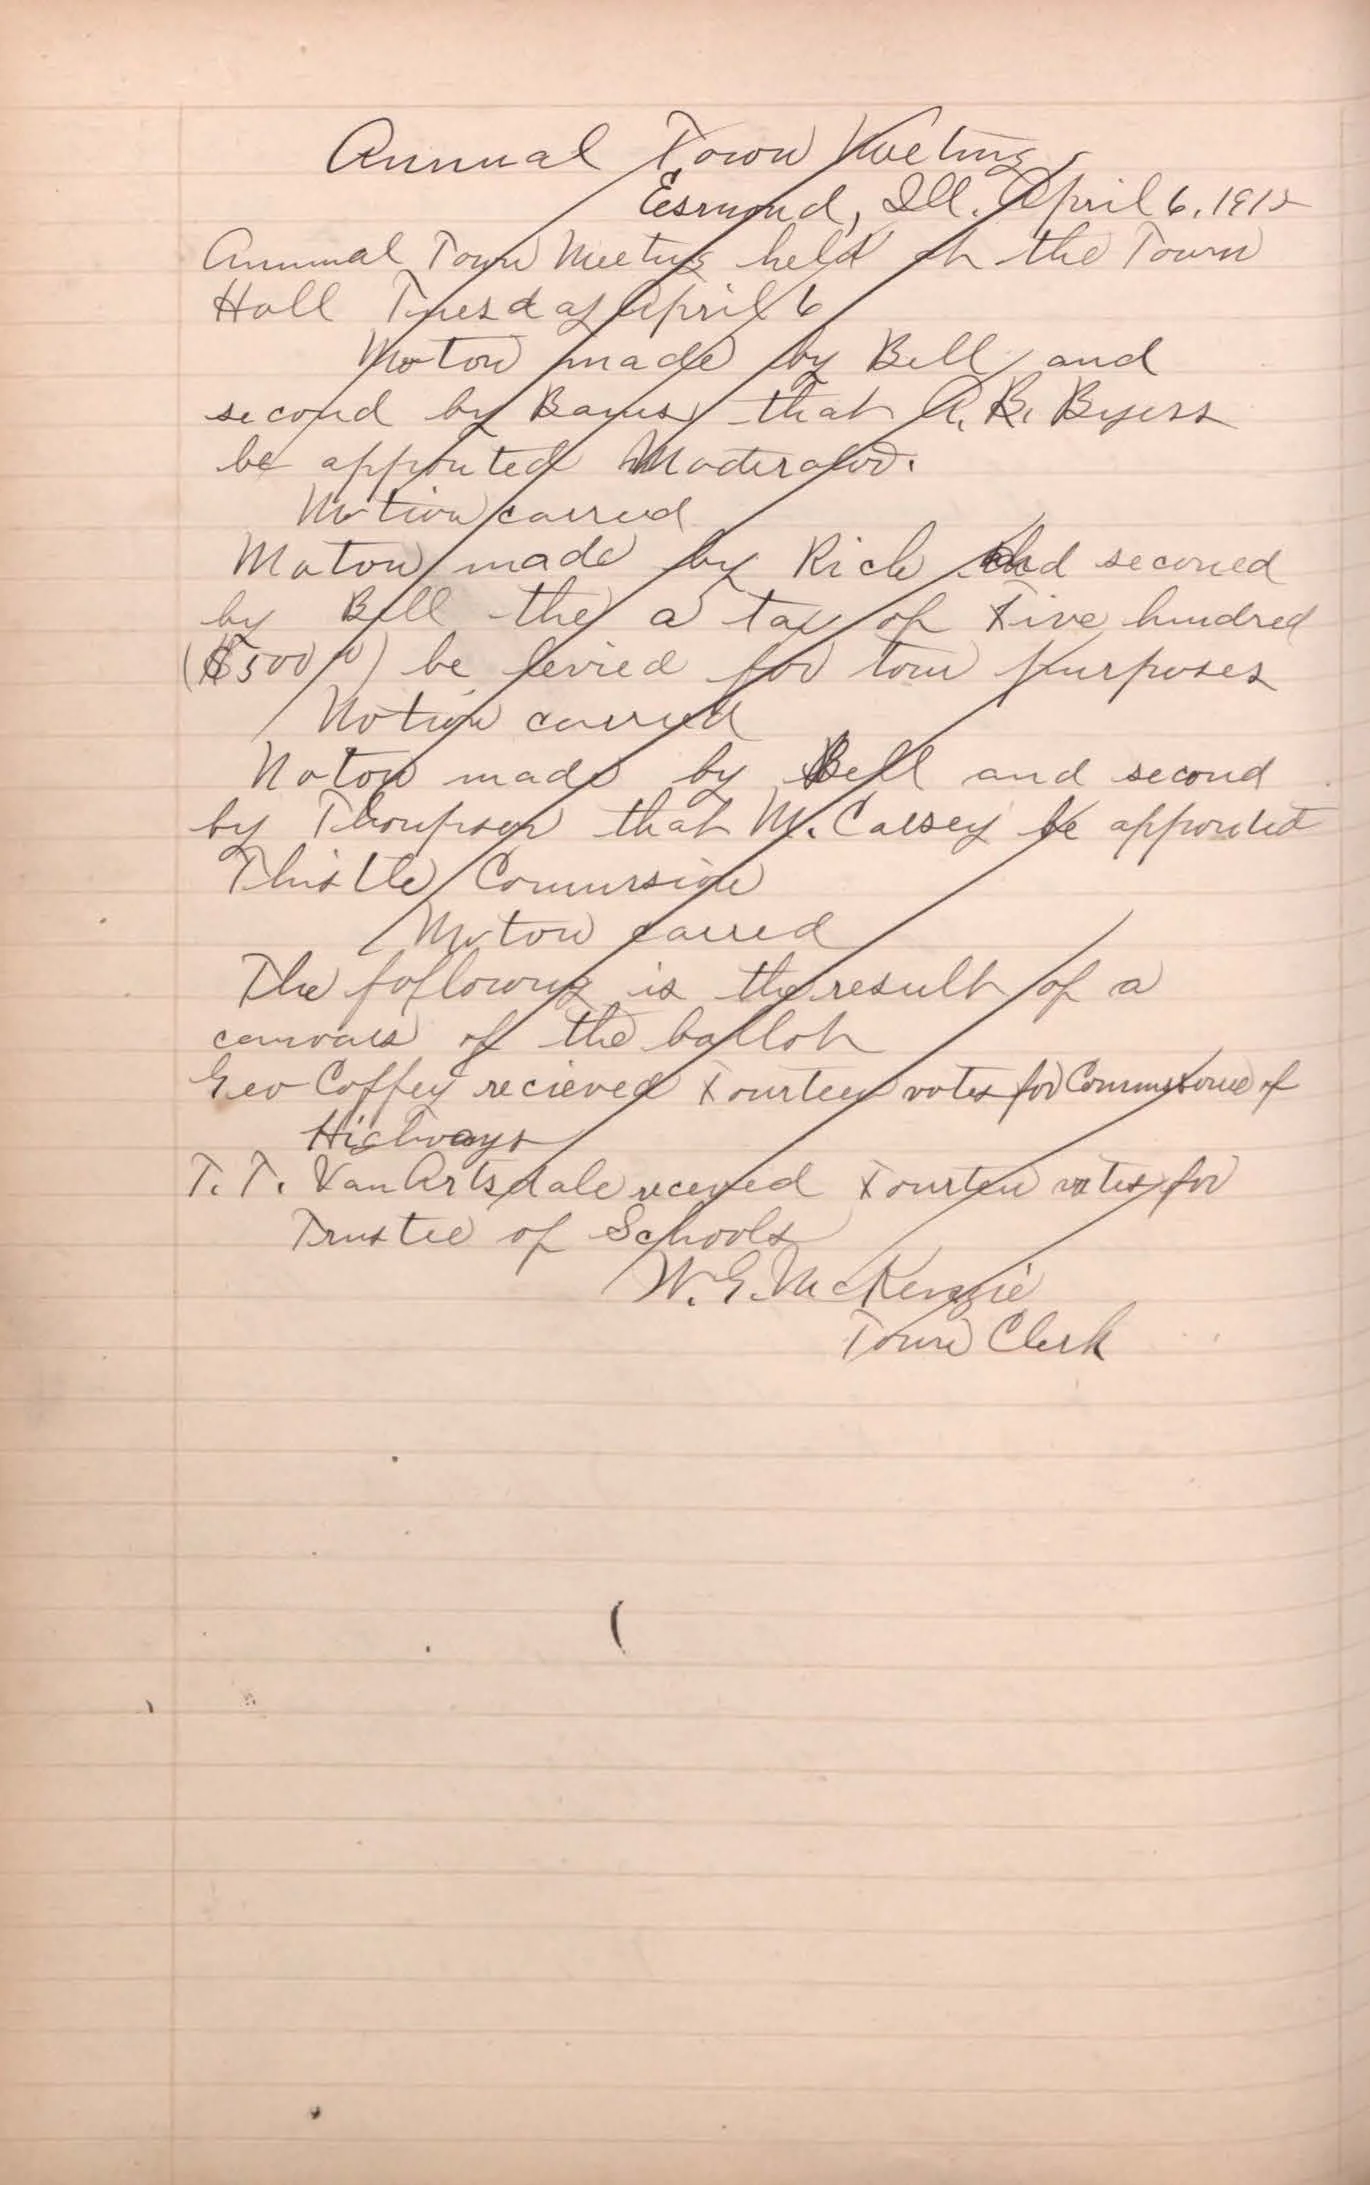 Annual Town Meeting
Esmond, Ill. April 6, 1915
Annual Town Meeting held in the Town
Hall Tuesday April 6
Moton made by Bell and
second by that A. B. Byers
be appointed Moderator.
Motion carried
Moton made by Rich and seconed
by Bell the a tax of Five hundred
($500) be levied for town purposes
Motion carried
Moton made by Bell and second
by Thompson that M. Caesey be appointed
Thistle
Moton carred
The following is the result of a
canvass of the ballot
Geo Coffey recieved Fourteen votes for of
Highways
T. T. Van Artsdale received Fourteen votes for
Trustee of Schools
W. G. McKenzie
Town Clerk